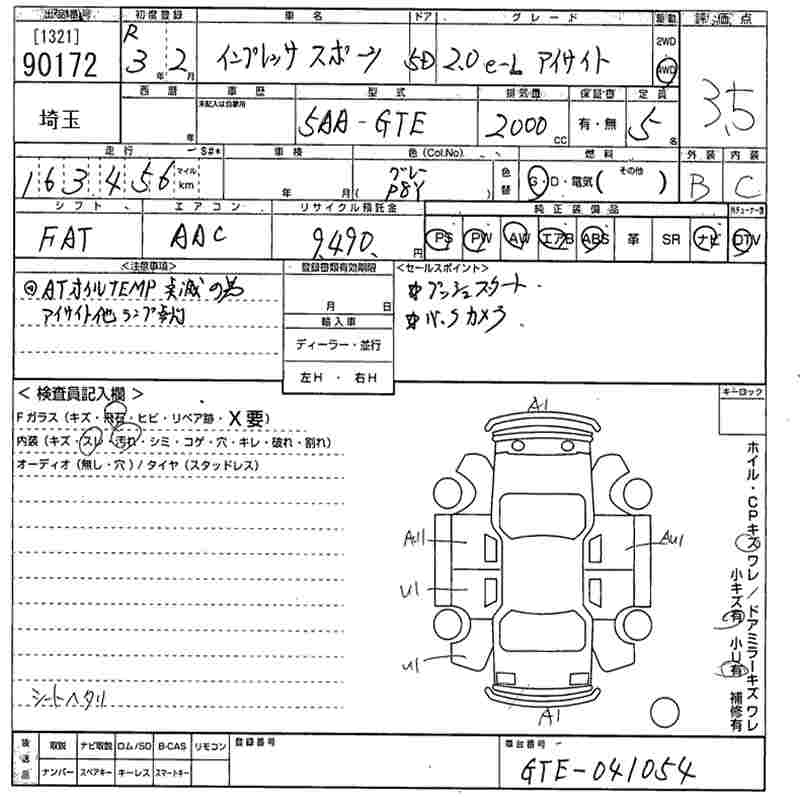 出品番号 初度登録 車名 ドア グレード 駆動 評価点
[1321] 90172
R 3年 2月
インプレッサ スポーツ 5D 2.0 e-L アイサイト
2WD
4WD
3.5
西暦 車歴 型式 排気量 保証書 定員
埼玉 年 未記入は自家用 5AA-GTE 2000cc 有・無 5名
走行 S#* 車検 色(Col.No) 燃料 外装 内装
163456 マイル km 年 月 グレー P8Y 色替 G・D・電気(その他) B C
シフト エアコン リサイクル預託金 純正装備品
FAT AAC 9,490円 PS PW AW エアB ABS 革 SR ナビ TV
<注意事項> 登録書類有効期限 <セールスポイント>
ATオイルTEMP 点滅の為
アイサイト他ランプ点灯
月 日
プッシュスタート
バックカメラ
輸入車
ディーラー・並行
左H・右H
<検査員記入欄> キーロック
Fガラス(キズ・飛石・ヒビ・リペア跡・X要)
内装(キズ・スレ・汚れ・シミ・コゲ・穴・キレ・破れ・割れ)
オーディオ(無し・穴)/タイヤ(スタッドレス)
A1
A11
AU1
U1
U1
A1
ホイル・CPキズワレ/ドアミラーキズワレ
小キズ有 小U有 補修有
シートヘタリ
後送品 取説 ナビ取説 ロム/SD B-CAS リモコン 登録番号 車台番号
ナンバー スペアキー キーレス スマートキー
GTE-041054